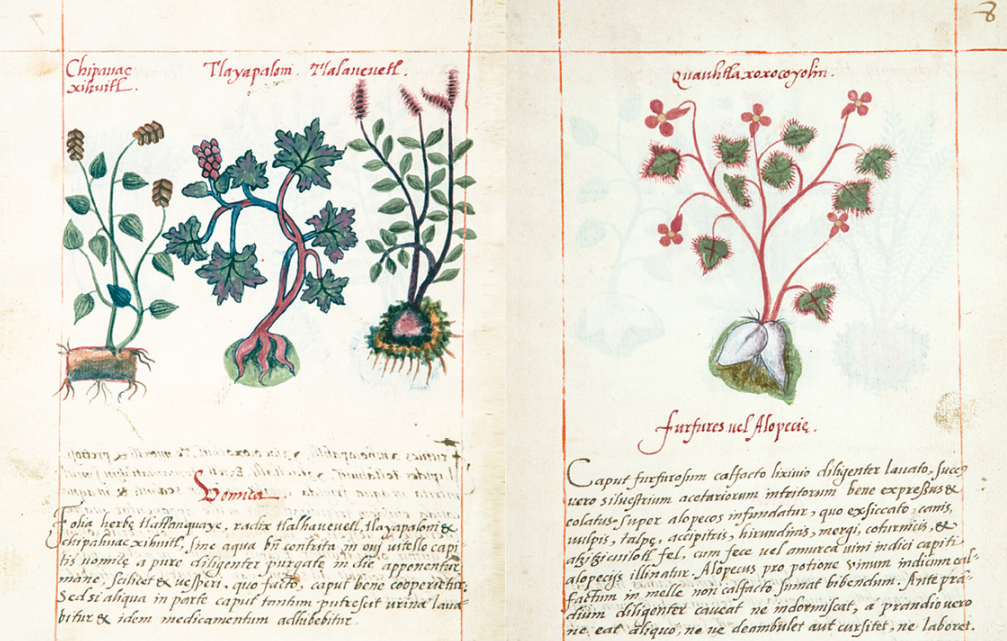 8
Chipauac
xihuitl.
Tlayapaloni. Tlalaueuetl.
Vomica
Folia herbę tlatlanquaye, radix tlalhaueuetl, tlayapaloni &
chipahuac xihuitl, sine aqua bñ contrita in oui vitello capi-
tis vomicę a pure diligenter purgatę in die apponentur
mane, scilicet & uesperi, quo facto, caput bene cooperiatur.
Sed si aliqua in parte caput tantum putrescit urina laua-
bitur & idem medicamentum adhibebitur.
Quauhtlaxoxocoyolin.
furfures vel Alopecię.
Caput furfurosum calfacto lixiuio diligenter lauato, succus
vero siluestrium acetariorum intritorum bene expressus &
colatus super alopecos infundatur, quo exsiccato, canis,
vulpis, talpę, accipitris, hirundinis, mergi, coturnicis, &
atzitzicuilotl fel, cum fece vel amurca vini indici capiti
alopecijs illinatur. Alopecus pro potione vinum indicum cal-
factum in melle non calfacto sumat bibendum. Ante pran-
dium diligenter caueat ne indormiscat, a prandio vero
ne eat aliquo, ne ve deambulet aut cursitet, ne laboret.